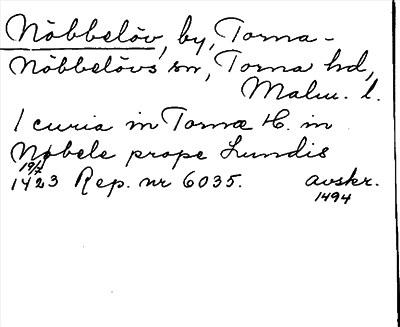 Nöbbelöv, by, Torna-
Nöbbelövs sn, Torna hd,
Malm. l.
1 curia in Tornæ H. in
Nøbele prope Lundis
19/7
1423 Rep. nr 6035. avskr.
1494